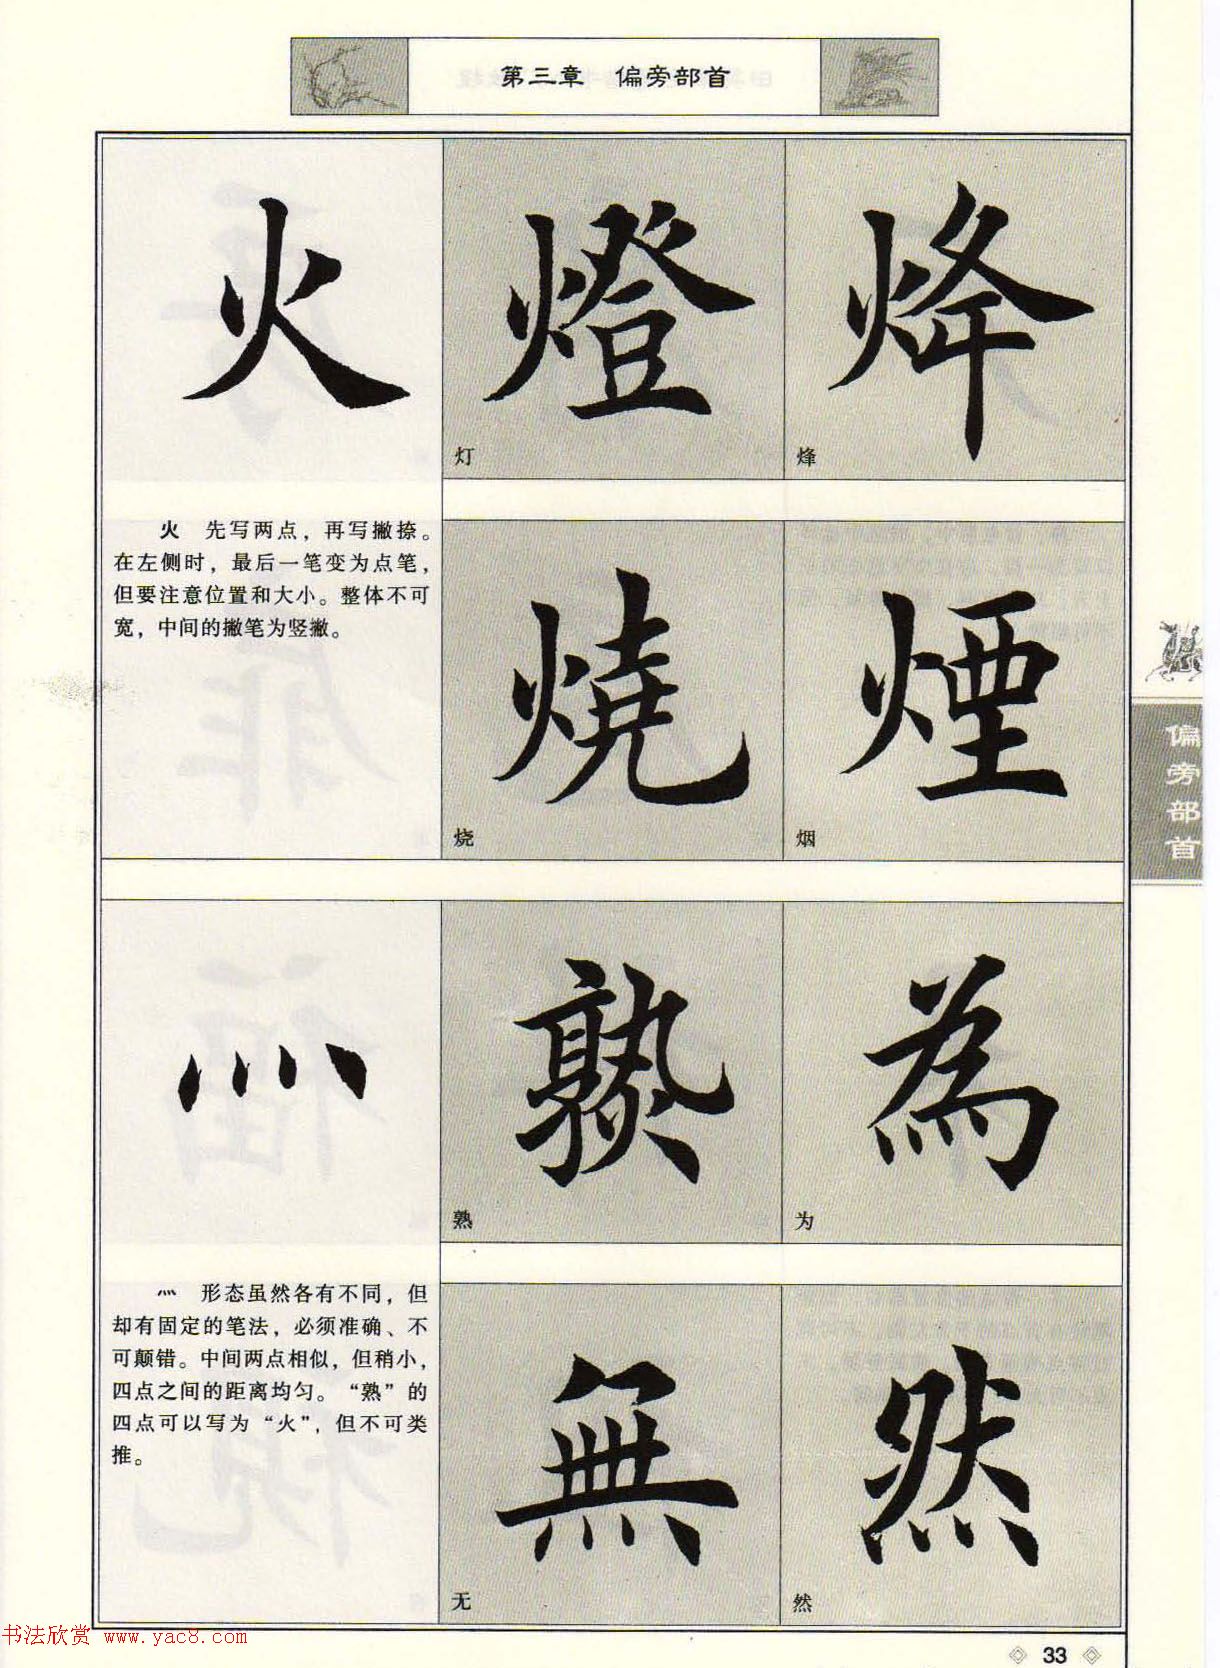 第三章 偏旁部首
火 燈 烽
灯 烽
火 先写两点，再写撇捺。
在左侧时，最后一笔变为点笔，
但要注意位置和大小。整体不可
宽，中间的撇笔为竖撇。
燒 煙
烧 烟
偏旁部首
灬 熟 為
熟 为
灬 形态虽然各有不同，但
却有固定的笔法，必须准确、不
可颠错。中间两点相似，但稍小，
四点之间的距离均匀。“熟”的
四点可以写为“火”，但不可类
推。
無 然
无 然
书法欣赏 www.yac8.com
33